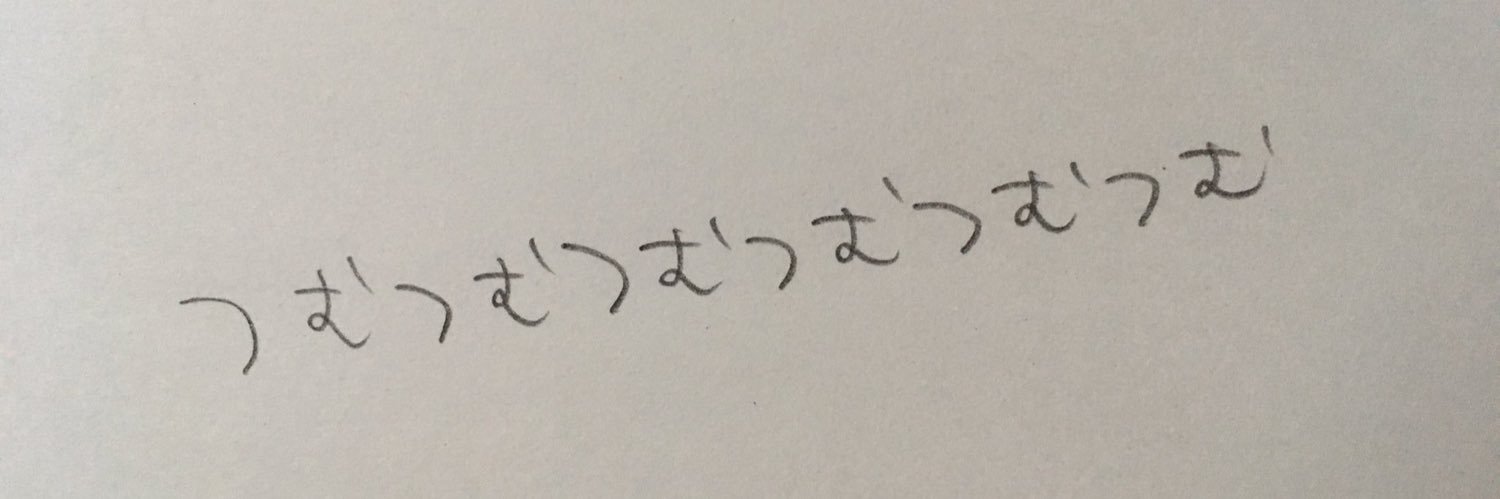 つむつむつむつむつむつむ